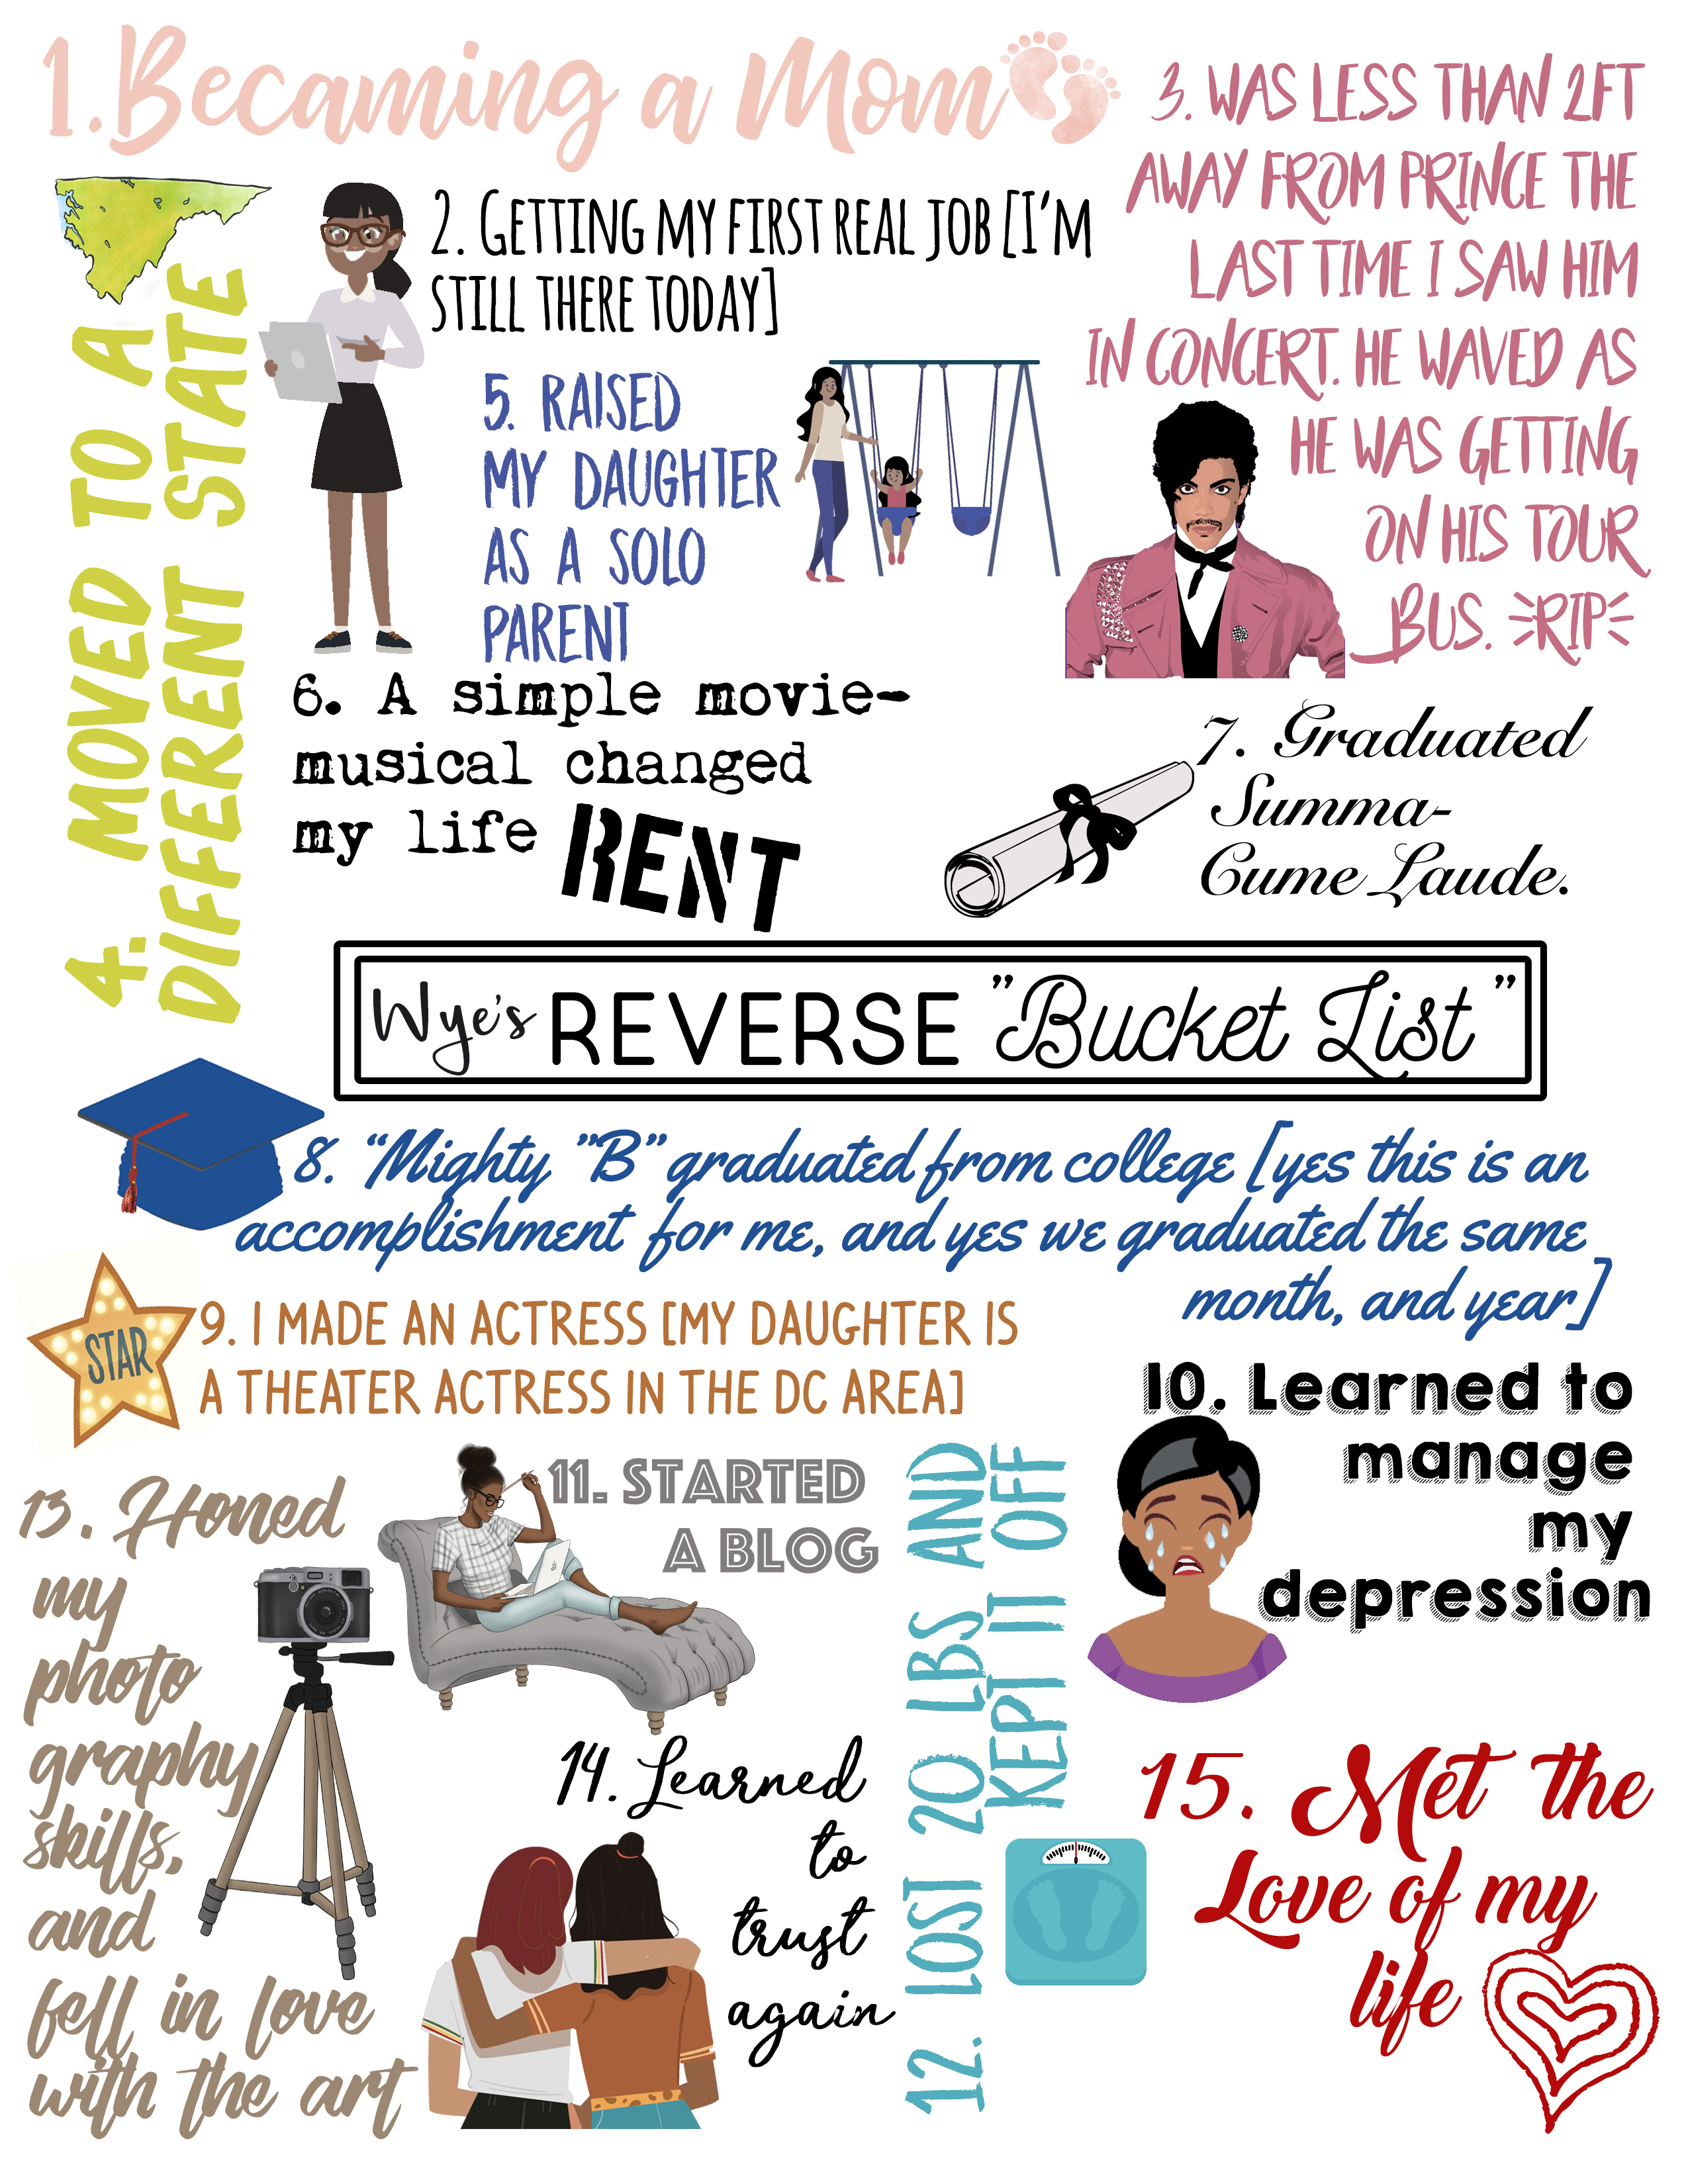 1. Becaming a Mom
2. GETTING MY FIRST REAL JOB [I'M
STILL THERE TODAY]
3. WAS LESS THAN 2FT
AWAY FROM PRINCE THE
LAST TIME I SAW HIM
IN CONCERT. HE WAVED AS
HE WAS GETTING
ON HIS TOUR
BUS. RIP
4. MOVED TO A
DIFFERENT STATE
5. RAISED
MY DAUGHTER
AS A SOLO
PARENT
6. A simple movie-
musical changed
my life RENT
7. Graduated
Summa-
Cume Laude.
Wye's REVERSE "Bucket List"
8. "Mighty "B" graduated from college [yes this is an
accomplishment for me, and yes we graduated the same
month, and year]
STAR
9. I MADE AN ACTRESS [MY DAUGHTER IS
A THEATER ACTRESS IN THE DC AREA]
10. Learned to
manage
my
depression
11. STARTED
A BLOG
12. LOST 20 LBS AND
KEPT IT OFF
13. Honed
my
photo
graphy
skills,
and
fell in love
with the art
14. Learned
to
trust
again
15. Met the
Love of my
life